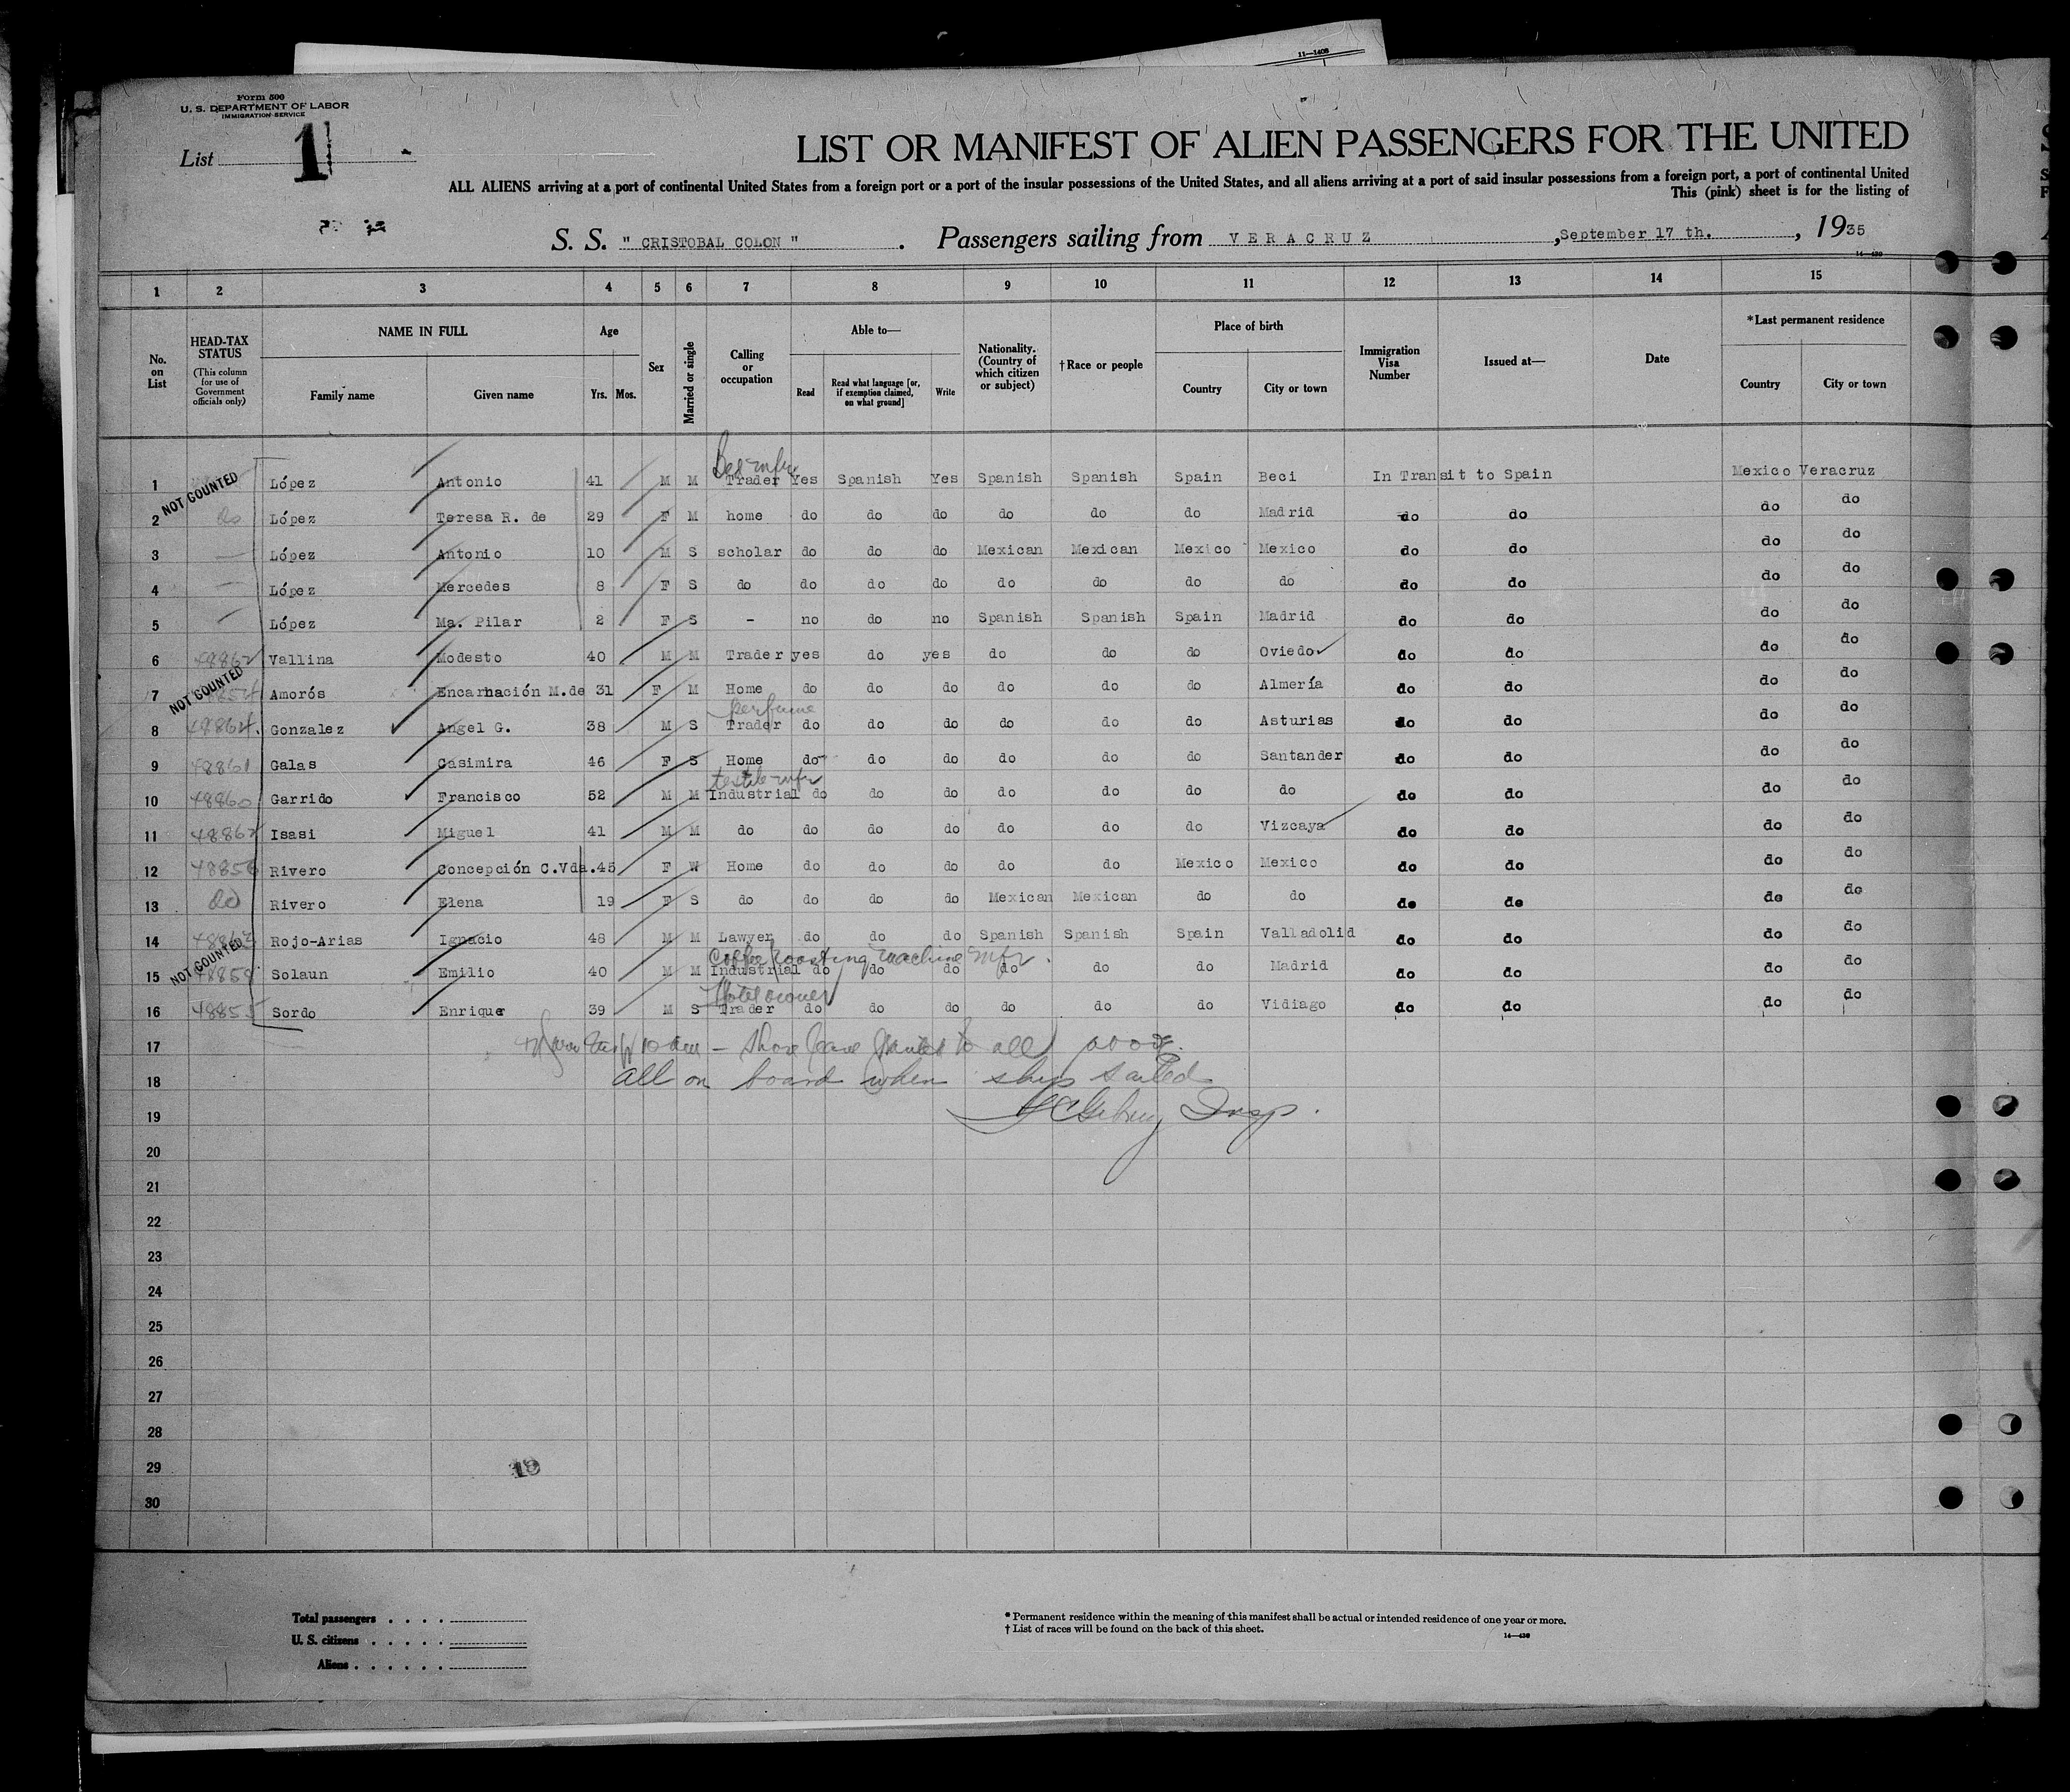 11—1408
Form 500
U. S. DEPARTMENT OF LABOR
IMMIGRATION SERVICE
List 1
LIST OR MANIFEST OF ALIEN PASSENGERS FOR THE UNITED
ALL ALIENS arriving at a port of continental United States from a foreign port or a port of the insular possessions of the United States, and all aliens arriving at a port of said insular possessions from a foreign port, a port of continental United
This (pink) sheet is for the listing of
S. S. " CRISTOBAL COLON " . Passengers sailing from VERACRUZ , September 17 th. , 1935
14—430
1 2 3 4 5 6 7 8 9 10 11 12 13 14 15
No. on List
HEAD-TAX STATUS (This column for use of Government officials only)
NAME IN FULL
Family name Given name
Age
Yrs. Mos.
Sex
Married or single
Calling or occupation
Able to—
Read Read what language [or, if exemption claimed, on what ground] Write
Nationality. (Country of which citizen or subject)
†Race or people
Place of birth
Country City or town
Immigration Visa Number
Issued at—
Date
*Last permanent residence
Country City or town
1 NOT COUNTED López Antonio 41 M M Trader Yes Spanish Yes Spanish Spanish Spain Beci In Transit to Spain Mexico Veracruz
2 do López Teresa R. de 29 F M home do do do do do do Madrid do do do do
3 — López Antonio 10 M S scholar do do do Mexican Mexican Mexico Mexico do do do do
4 — López Mercedes 8 F S do do do do do do do do do do do do
5 — López Ma. Pilar 2 F S - no do no Spanish Spanish Spain Madrid do do do do
6 48862 Vallina Modesto 40 M M Trader yes do yes do do do Oviedo do do do do
7 NOT COUNTED Amorós Encarnación M.de 31 F M Home do do do do do do Almería do do do do
perfume
8 48864 Gonzalez Angel G. 38 M S Trader do do do do do do Asturias do do do do
9 48861 Galas Casimira 46 F S Home do do do do do do Santander do do do do
textile mfr
10 48860 Garrido Francisco 52 M M Industrial do do do do do do do do do do do
11 48862 Isasi Miguel 41 M M do do do do do do do Vizcaya do do do do
12 48856 Rivero Concepción C.Vda. 45 F W Home do do do do do Mexico Mexico do do do do
13 do Rivero Elena 19 F S do do do do Mexican Mexican do do do do do do
14 48863 Rojo-Arias Ignacio 48 M M Lawyer do do do Spanish Spanish Spain Valladolid do do do do
Coffee roasting machine mfr.
15 NOT COUNTED Solaun Emilio 40 M M Industrial do do do do do do Madrid do do do do
Hotel owner
16 48855 Sordo Enrique 39 M S Trader do do do do do do Vidiago do do do do
17 10 am — Shore leave granted to all
18 all on board when ship sailed
19 Insp.
20
21
22
23
24
25
26
27
28
29
30
Total passengers . . . .
U. S. citizens . . . . .
Aliens . . . . . .
* Permanent residence within the meaning of this manifest shall be actual or intended residence of one year or more.
† List of races will be found on the back of this sheet.
14—430